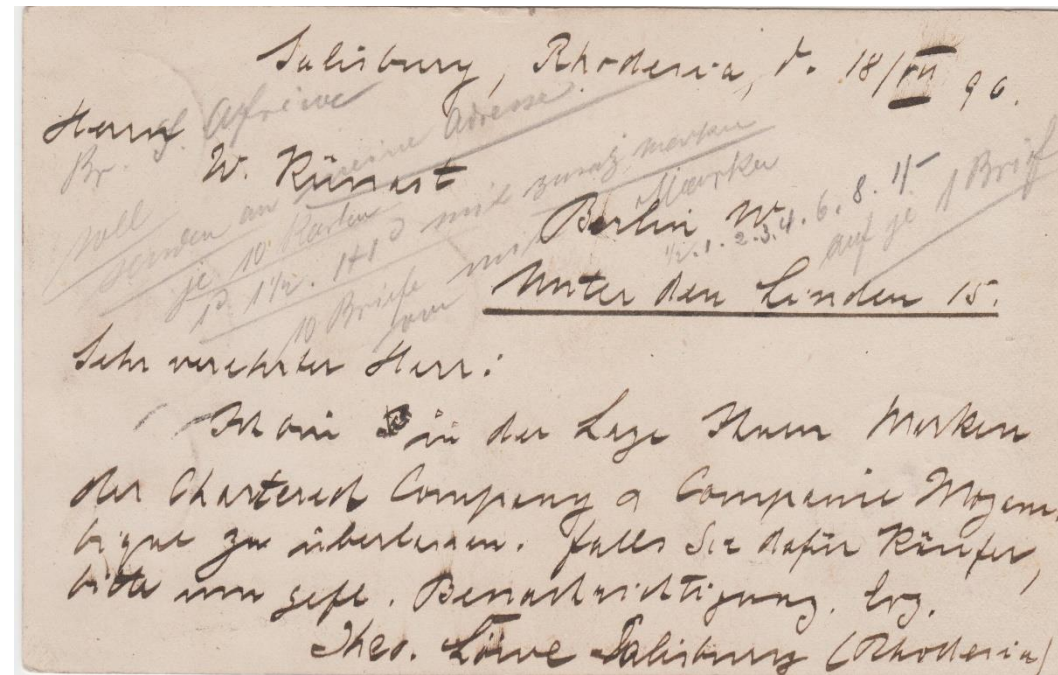 Salisbury, Rhodesia, d. 18/VII 96.
Herrn
W. Künast
Berlin W.
Unter den Linden 15.
Br. S. Afrika
soll
senden an meine Adresse
je 10 Karten
1d 1½. 1+1d mit zusatz marken
10 Briefe mit Marken
von ½. 1. 2. 3. 4. 6. 8. 1/-
auf je 1 Brief
Sehr verehrter Herr:
Ich bin in der Lage Ihnen Marken
der Chartered Company & Companie Mozam
bique zu überlassen. Falls Sie dafür Käufer,
bitte um gefl. Benachrichtigung. Erg.
Theo. Löwe Salisbury (Rhodesia)